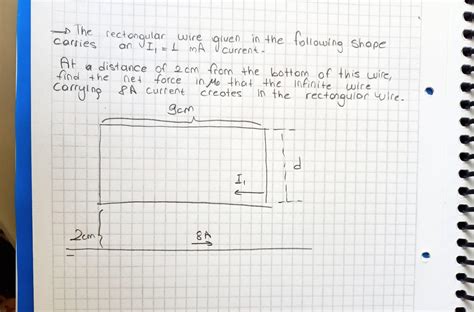 → The rectangular wire given in the following shape
carries an I₁ = 1 mA current.
At a distance of 2cm from the bottom of this wire,
find the net force in μ₀ that the infinite wire
carrying 8A current creates in the rectangular wire.
9cm
I₁
d
2cm
8A